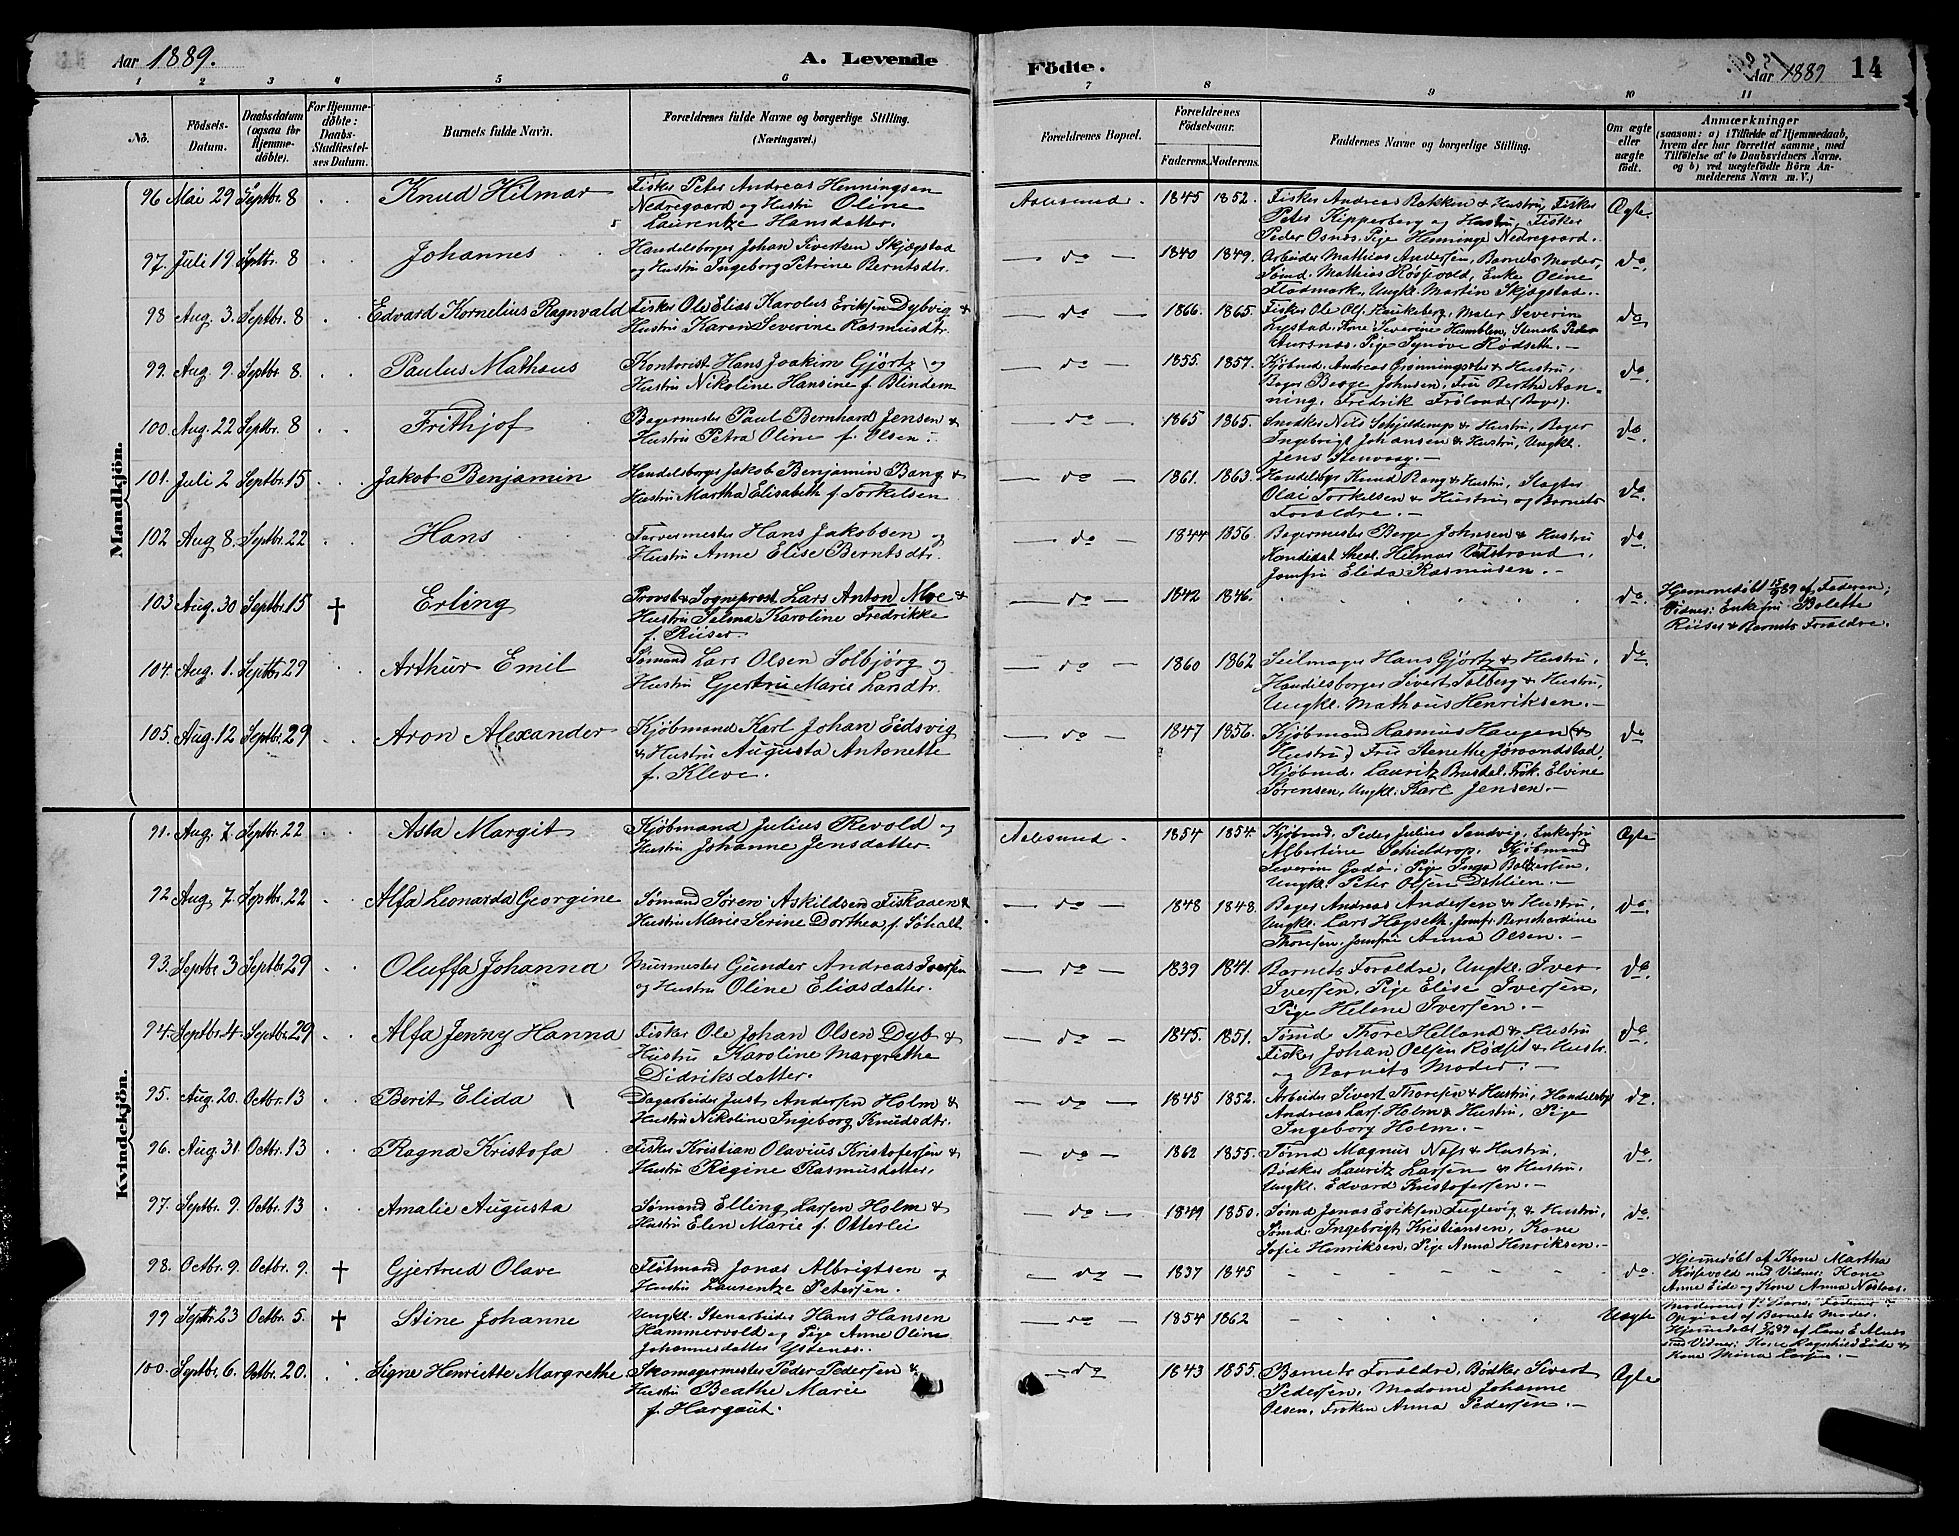 Aar 1889.
A. Levende
Födte.
Aar 1889
14
1 2 3 4 5 6 7 8 9 10 11
Nö.
Födsels-Datum.
Daabsdatum (ogsaa for Hjemmedöbte).
For Hjemmedöbte: Daabs-Stadfæstelses Datum.
Barnets fulde Navn.
Forældrenes fulde Navne og borgerlige Stilling.
(Næringsvei.)
Forældrenes Bopæl.
Forældrenes Födselsaar.
Faderens. Moderens.
Faddernes Navne og borgerlige Stilling.
Om ægte eller uægte födt.
Anmærkninger
(saasom: a) i Tilfælde af Hjemmedaab,
hvem der har forrettet samme, med
Tilföielse af to Daabsvidners Navne.
og b) ved uægtefödte Börn Anmelderens Navn m. V.)
Mandkjön.
96 Mai 29 Septbr. 8 Knud Hilmar
Fisker Peter Andreas Henningsen
Nedregaard og Hustru Oline
Laurentze Hansdatter.
Aalesund. 1845 1852.
Fisker Andreas Bakken & Hustru, Fisker
Peter Kipperberg og Hustru, Fisker
Peder Osnes, Pige Henninge Nedregaard.
Ægte.
97. Juli 19. Septbr. 8 Johannes
Handelsborger Johan Sivertsen Skjægstad
og Hustru Ingeborg Petrine Berntsdtr.
do 1840 1849.
Arbeider Mathias Andersen, Barnets Moder,
Tömd. Mathias Rösevold, Enke Oline
Flodmark, Ungkl. Martin Skjægstad.
do.
98 Aug. 3. Septbr. 8 Edvard Kornelius Ragnvald
Fisker Ole Elias Karolus Eriksen Dybvig &
Hustru Karen Severine Rasmusdtr.
do 1866. 1865.
Fisker Ole Ols. Maler Severin
Lystad, Severine Humblen, Peder
Aursnæs. Pige Synöve Rödseth.
do
99. Aug. 9. Septbr. 8. Paulus Mathæus
Kontorist Hans Joakim Gjörtz og
Hustru Nikoline Hansine f. Blindem
do 1855. 1857.
Kjöbmd. Andreas Grönningsæter & Hustru,
Bager Berge Johnsen, Fru Berthe Aanning,
Fredrik Fröland (Bager).
do.
100. Aug. 22 Septbr. 8 Frithjof
Bagermester Paul Bernhard Jensen &
Hustru Petra Oline f. Olsen.
do 1865 1865.
Snedker Nils Schjelderup & Hustru, Bager
Ingebrigt Johansen & Hustru, Ungkl.
Jens Stenvaag.
do.
101. Juli 2 Septbr. 15 Jakob Benjamin
Handelsborger Jakob Benjamin Bang &
Hustru Martha Elisabeth f. Torkelsen
do 1861. 1863.
Handelsbgr. Knud Bang & Hustru, Slagter
Olai Torkelsen & Hustru og Barnets
Forældre.
do.
102 Aug 8. Septbr. 22 Hans
Farvermester Hans Jakobsen og
Hustru Anne Elise Berntsdtr.
do 1844 1856
Bagermester Berge Johnsen & Hustru
Kandidat theol. Hilmar Vatstrand,
Jomfru Elida Rasmusen.
do.
103 Aug. 30 Septbr. 15 † Erling
Provst & Sogneprest Lars Anton Moe &
Hustru Selma Karoline Fredrikke
f. Riiser
do 1842 1846.
do.
Hjemmedöbt 15/9 89 af Faderen;
Vidner: Enkefru Bolette
Riiser & Barnets Forældre.
104. Aug. 1. Septbr. 29 Arthur Emil
Sömand Lars Olsen Solbjörg og
Hustru Gjertru Marie Larsdtr.
do 1860 1862
Seilmager Hans Gjörtz & Hustru,
Handelsborger Sivert Solberg & Hustru,
Ungkl. Mathæus Henriksen.
do
105. Aug. 12 Septbr. 29 Aron Alexander
Kjöbmand Karl Johan Eidsvig
& Hustru Augusta Antonette
f. Kleve.
do 1847 1856.
Kjöbmand Rasmus Haugen (&
Hustru) Fru Stenethe Jöraandstad
Kjöbmd. Lauritz Brusdal, Frök. Elvine
Sörensen, Ungkl. Karl Jensen.
do
Kvindekjön.
91. Aug. 7 Septbr. 22 Asta Margit
Kjöbmand Julius Revold og
Hustru Johanne Jensdatter
Aalesund. 1854 1854.
Kjöbmd. Peder Julius Sandvig, Enkefru
Albertine Schieldrop. Kjöbmand
Severin Godö, Pige Inga
Ungkl. Peter Olsen Dahlien.
Ægte
92 Aug. 7. Septbr. 22 Alfa Leonarda Georgine
Sömand Sören Askildsen Fiskaaen &
Hustru Marie Serine Dorthea f. Söholt
do 1848 1848.
Bager Andreas Andersen & Hustru,
Ungkl. Lars Hagseth. Jomfr. Bernhardine
Thoresen. Jomfru Anna Olsen.
do.
93. Septbr 3 Septbr. 29 Oluffa Johanna
Murmester Gunder Andreas Iversen
og Hustru Oline Eliasdatter.
do 1839 1841.
Barnets Forældre, Ungkl. Iver
Iversen, Pige Elise Iversen,
Pige Helene Iversen.
do.
94. Septbr. 4. Septbr. 29 Alfa Jenny Hanna
Fisker Ole Johan Olsen Dyb &
Hustru Karoline Margrethe
Didriksdatter.
do 1845. 1851.
Tömd. Thore Helland & Hustru
Fisker Johan Olsen Rödset & Hustr.
og Barnets Moder.
do
95. Aug. 20. Octbr. 13 Berit Elida
Dagarbeider Just Andersen Holm &
Hustru Nikoline Ingeborg Knudsdtr.
do 1845 1852.
Arbeider Sivert Thoresen & Hustru, Handelsbgr
Andreas Lars. Holm & Hustru, Pige
Ingeborg Holm.
do.
96. Aug. 31. Octbr. 13 Ragna Kristofa
Fisker Kristian Olavius Kristofersen &
Hustru Regine Rasmusdatter,
do 1862 1855.
Tömd Magnus Næs & Hustru,
Bödker Lauritz Larsen & Hustru,
Ungkl. Edvard Kristofersen.
do.
97. Septbr. 9. Octbr. 13 Amalie Augusta
Sömand Elling Larsen Holm &
Hustru Elen Marie f. Otterlei
do 1849 1850.
Tömd Jonas Eriksen Fuglevig & Hustru,
Tömd. Ingebrigt Kristiansen, Kone
Sofie Henriksen, Pige Anna Henriksen.
do.
98. Octbr. 9. Octbr. 9. † Gjertrud Olave
Flötmand Jonas Albrigtsen og
Hustru Laurentze Petersen.
do 1837 1845
do
Hjemdöbt af Kone Martha
Rösevold med Vidner: Kone
Anne Eide og Kone Anna
99 Septbr. 23 Octbr. 5. † Stine Johanne
Ungkl. Stenarbeider Hans Hansen
Hammervold og Pige Anne Oline
Johannesdatter Ystenæs.
do 1854 1862
Uægte
Moderens 1ste Barn, Faderens
Opgivet af Barnets Moder.
Hjemdöbt 5/10 89 af
med Vidner: Kone Ragnhild Eide &
Kone Larsen.
100. Septbr. 6. Octbr. 20. Signe Henriette Margrethe
Skomagermester Peder Pedersen &
Hustru Beathe Marie
f. Hargaut.
do 1843 1855.
Barnets Forældre, Bödker Sivert
Pedersen, Madame Johanne
Olsen, Fröken Anna Pedersen.
Ægte